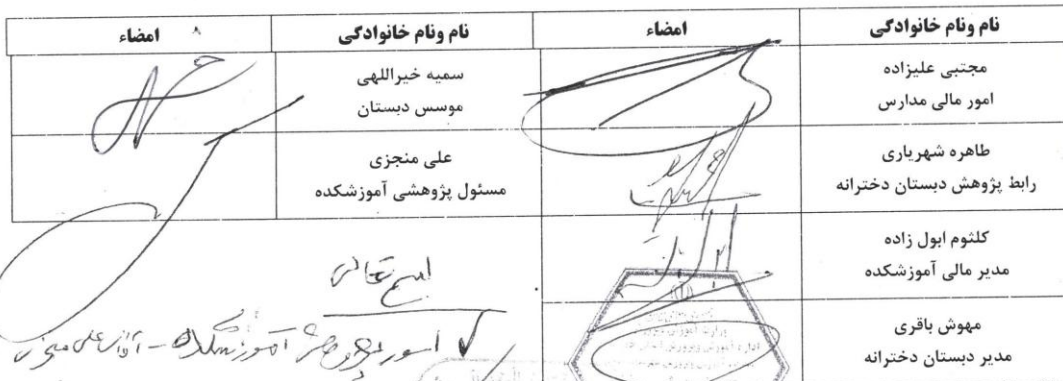 نام ونام خانوادگی امضاء نام ونام خانوادگی امضاء
مجتبی علیزاده
امور مالی مدارس
سمیه خیراللهی
موسس دبستان
طاهره شهریاری
رابط پژوهش دبستان دخترانه
علی منجزی
مسئول پژوهشی آموزشکده
کلثوم ابول زاده
مدیر مالی آموزشکده
مهوش باقری
مدیر دبستان دخترانه
تعالی
امور آموزشکده - آقای علی منجزی